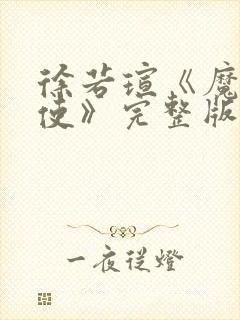 徐若瑄《魔
使》完整版
一夜从灯